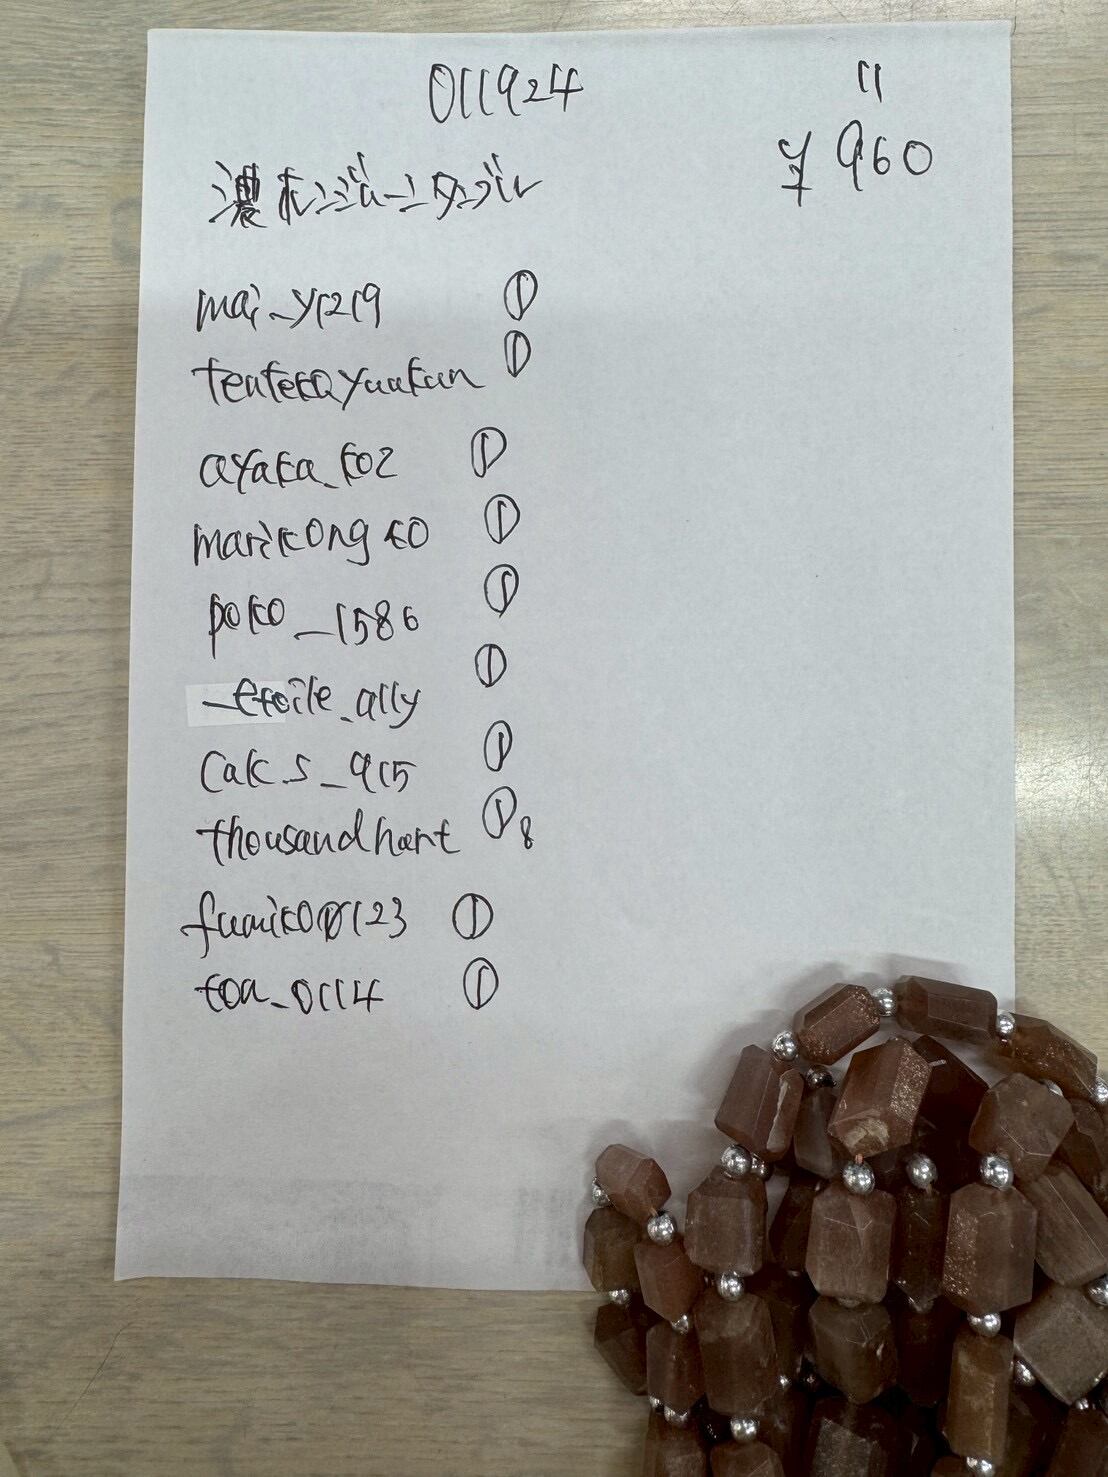 011924
11
¥ 960
濃オレンジムーンタンブル
mai_y1219 ①
teutekayuukun ①
ayaka_ko2 ①
marikongko ①
poko_1586 ①
_etoile_ally ①
cak.s_915 ①
thousandhart ① 8
toa_0114 ①